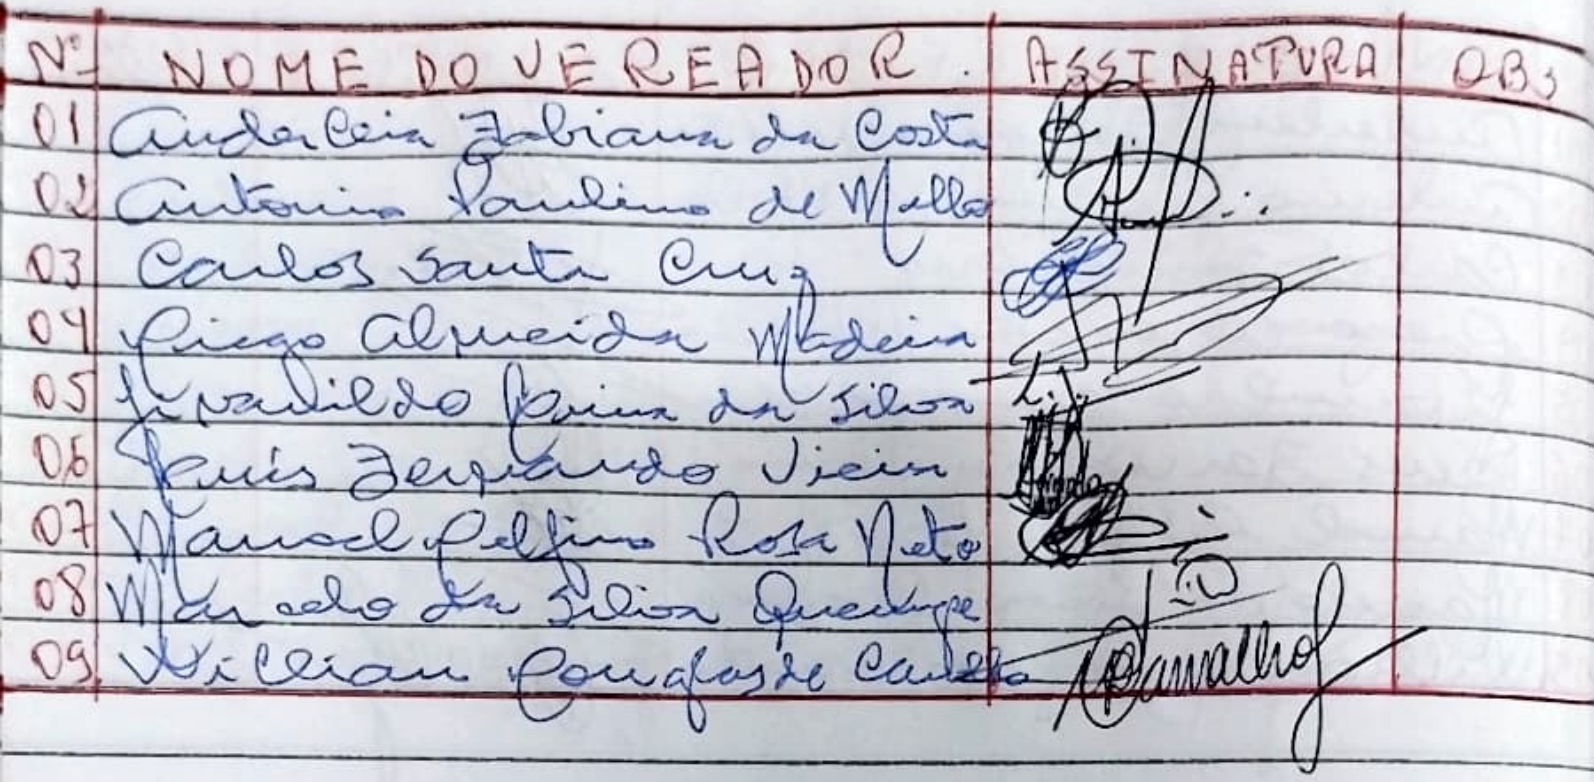 Nº NOME DO VEREADOR. ASSINATURA OBS
01 Anderleia Fabiana da Costa
02 Antonio Paulino de Mello
03 Carlos Santa Cruz
04 Diego Almeida Madeira
05 da Silva
06 Luis Fernando Vieira
07 Manoel Delfino Rosa Neto
08 Marcelo da Silva
09 Willian de Carvalho Carvalho